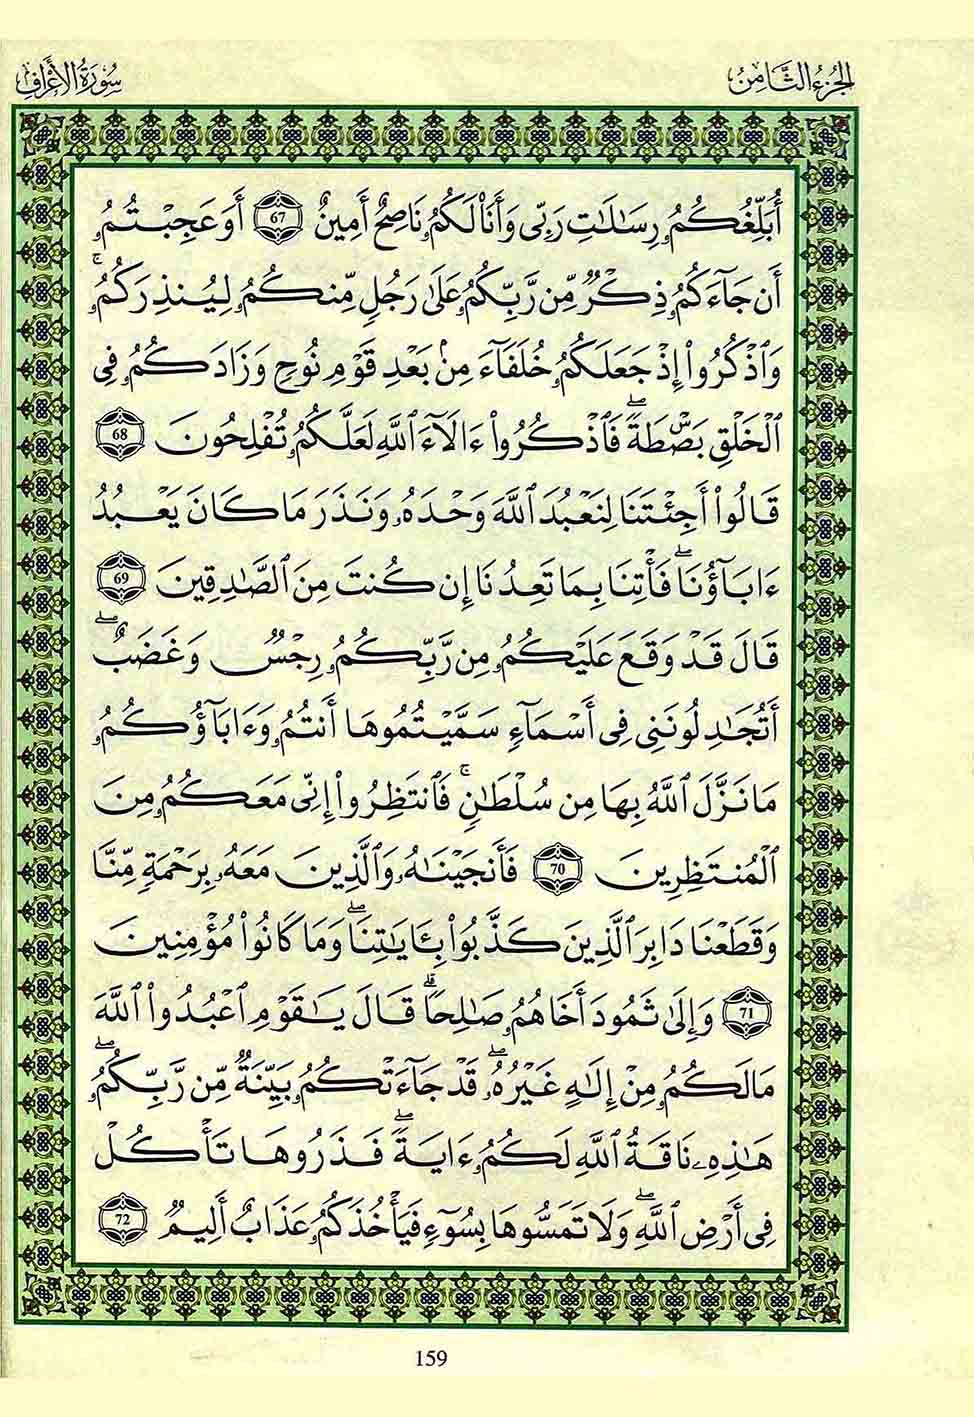 الجزء الثامن
سورة الأعراف
أُبَلِّغُكُمُۥ رِسَٰلَٰتِ رَبِّى وَأَنَا۠ لَكُمُۥ نَاصِحٌ أَمِينٌ 67 أَوَعَجِبْتُمُۥ
أَن جَآءَكُمُۥ ذِكْرٌ مِّن رَّبِّكُمُۥ عَلَىٰ رَجُلٍ مِّنكُمُۥ لِيُنذِرَكُمُۥ ۚ
وَٱذْكُرُوا۟ إِذْ جَعَلَكُمُۥ خُلَفَآءَ مِنۢ بَعْدِ قَوْمِ نُوحٍ وَزَادَكُمُۥ فِى
ٱلْخَلْقِ بَصْۜطَةً ۖ فَٱذْكُرُوا۟ ءَالَآءَ ٱللَّهِ لَعَلَّكُمُۥ تُفْلِحُونَ 68
قَالُوا۟ أَجِئْتَنَا لِنَعْبُدَ ٱللَّهَ وَحْدَهُۥ وَنَذَرَ مَا كَانَ يَعْبُدُ
ءَابَآؤُنَا ۖ فَأْتِنَا بِمَا تَعِدُنَا إِن كُنتَ مِنَ ٱلصَّٰدِقِينَ 69
قَالَ قَدْ وَقَعَ عَلَيْكُمُۥ مِن رَّبِّكُمُۥ رِجْسٌ وَغَضَبٌ ۖ
أَتُجَٰدِلُونَنِى فِى أَسْمَآءٍ سَمَّيْتُمُوهَا أَنتُمُۥ وَءَابَآؤُكُمُۥ
مَا نَزَّلَ ٱللَّهُ بِهَا مِن سُلْطَٰنٍ ۚ فَٱنتَظِرُوا۟ إِنِّى مَعَكُمُۥ مِنَ
ٱلْمُنتَظِرِينَ 70 فَأَنجَيْنَٰهُۥ وَٱلَّذِينَ مَعَهُۥ بِرَحْمَةٍ مِّنَّا
وَقَطَعْنَا دَابِرَ ٱلَّذِينَ كَذَّبُوا۟ بِـَٔايَٰتِنَا ۖ وَمَا كَانُوا۟ مُؤْمِنِينَ
71 وَإِلَىٰ ثَمُودَ أَخَاهُمُۥ صَٰلِحًا ۗ قَالَ يَٰقَوْمِ ٱعْبُدُوا۟ ٱللَّهَ
مَا لَكُمُۥ مِنْ إِلَٰهٍ غَيْرُهُۥ ۖ قَدْ جَآءَتْكُمُۥ بَيِّنَةٌ مِّن رَّبِّكُمُۥ ۖ
هَٰذِهِۦ نَاقَةُ ٱللَّهِ لَكُمُۥ ءَايَةً ۖ فَذَرُوهَا تَأْكُلْ
فِى أَرْضِ ٱللَّهِ ۖ وَلَا تَمَسُّوهَا بِسُوٓءٍ فَيَأْخُذَكُمُۥ عَذَابٌ أَلِيمٌ 72
159